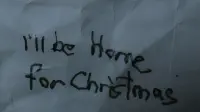 I'll be Home
for Christmas